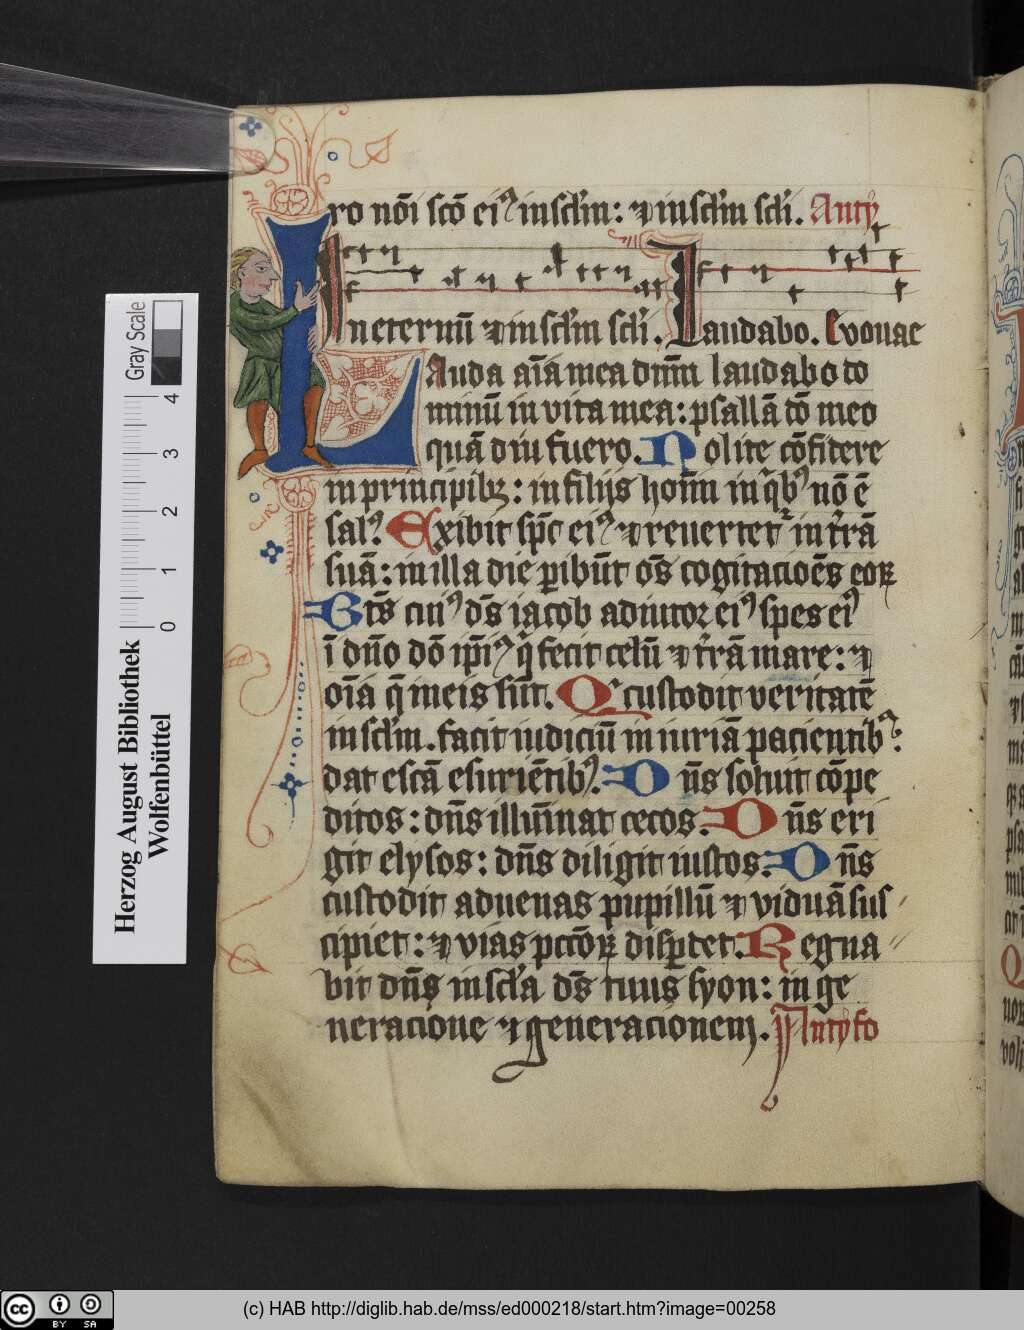 ro nōi scō eiꝰ in sclm̄: ⁊ in sclm̄ scli. Antyͥ
In eternū ⁊ in sclm̄ scli. Laudabo. Evovae
LAuda aīa mea dnm̄ laudabo do
minū in vita mea: psallā dō meo
quādiu fuero. Nolite cōfidere
in principibꝫ: in filijs hoīm in qͥbꝰ nō ē
salꝰ Exibit spc̄ eiꝰ ⁊ reuertetᷣ in tr̄ā
suā: in illa die ꝑibūt oēs cogitacōēs eoꝝ
Btūs cuiꝰ dš iacob adiutor eiꝰ spes eiꝰ
ī dn̄o dō ip̄iꝰ q̇ fecit celū ⁊ tr̄ā mare: ⁊
oīa q̄ in eis sūt. Qͥ custodit veritatē
in sclm̄. facit iudiciū iniuriā pacientibꝰ:
dat escā esuriētibꝰ. Dn̄s soluit cōpe
ditos: dn̄s illūinat cecos. Dn̄s eri
git elysos: dn̄s diligit iustos. Dn̄s
custodit aduenas pupillū ⁊ viduā sus
cipiet: ⁊ vias pctōꝝ disꝑdet. Regna
bit dn̄s in scl̄a dš tuus syon: in ge
neracione ⁊ generacionem. Antyͥ fo
Gray Scale
0 1 2 3 4
Herzog August Bibliothek
Wolfenbüttel
cc BY SA
(c) HAB http://diglib.hab.de/mss/ed000218/start.htm?image=00258